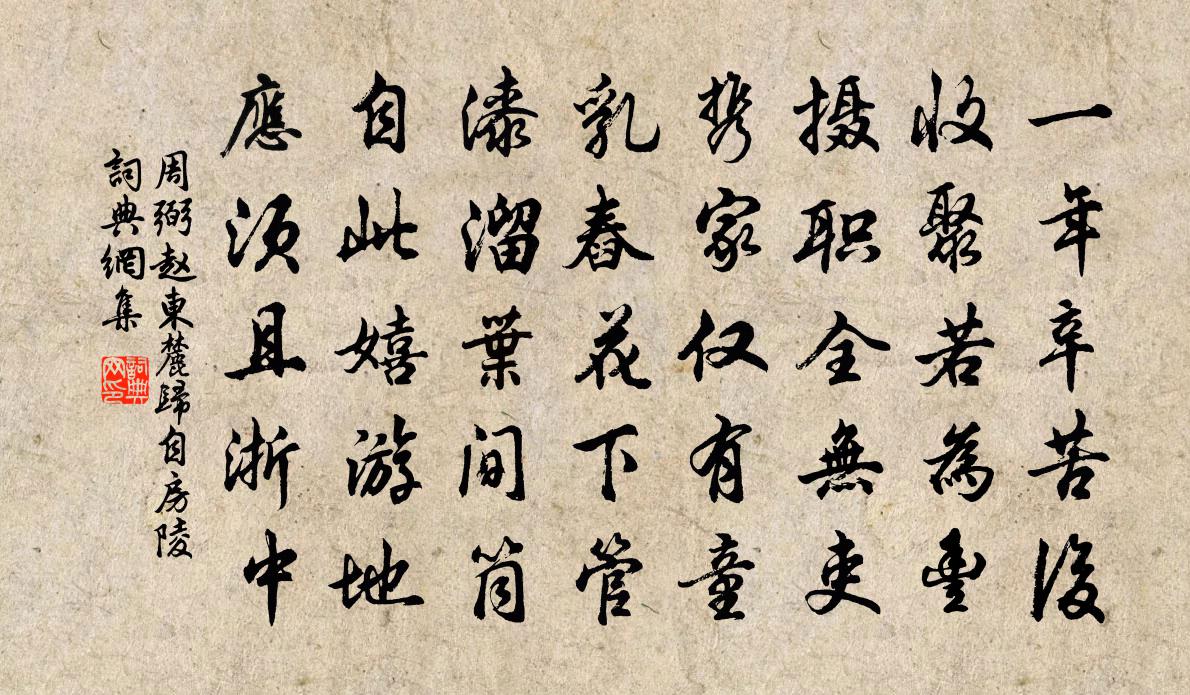 一年辛苦後
收聚若為豐
摄职全無吏
携家仅有童
乳舂花下管
漆溜葉間筒
自此嬉游地
應須且浙中
周弼赵東麓歸自房陵
詞典網集
詞典網印